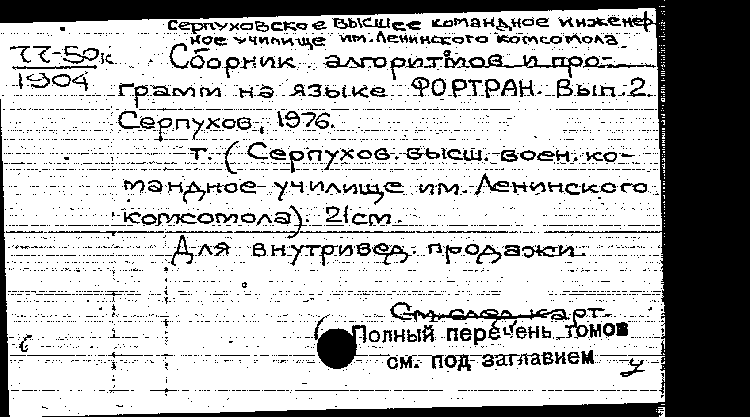 Серпуховское высшее командное инженер-
ное училище им. Ленинского комсомола
77-50к
1904
Сборник алгоритмов и про-
грамм на языке ФОРТРАН. Вып. 2.
Серпухов, 1976.
т. (Серпухов. высш. воен. ко-
мандное училище им. Ленинского
комсомола). 21см.
Для внутривед. продажи.
См. след. карт.
Полный перечень томов
см. под заглавием
у